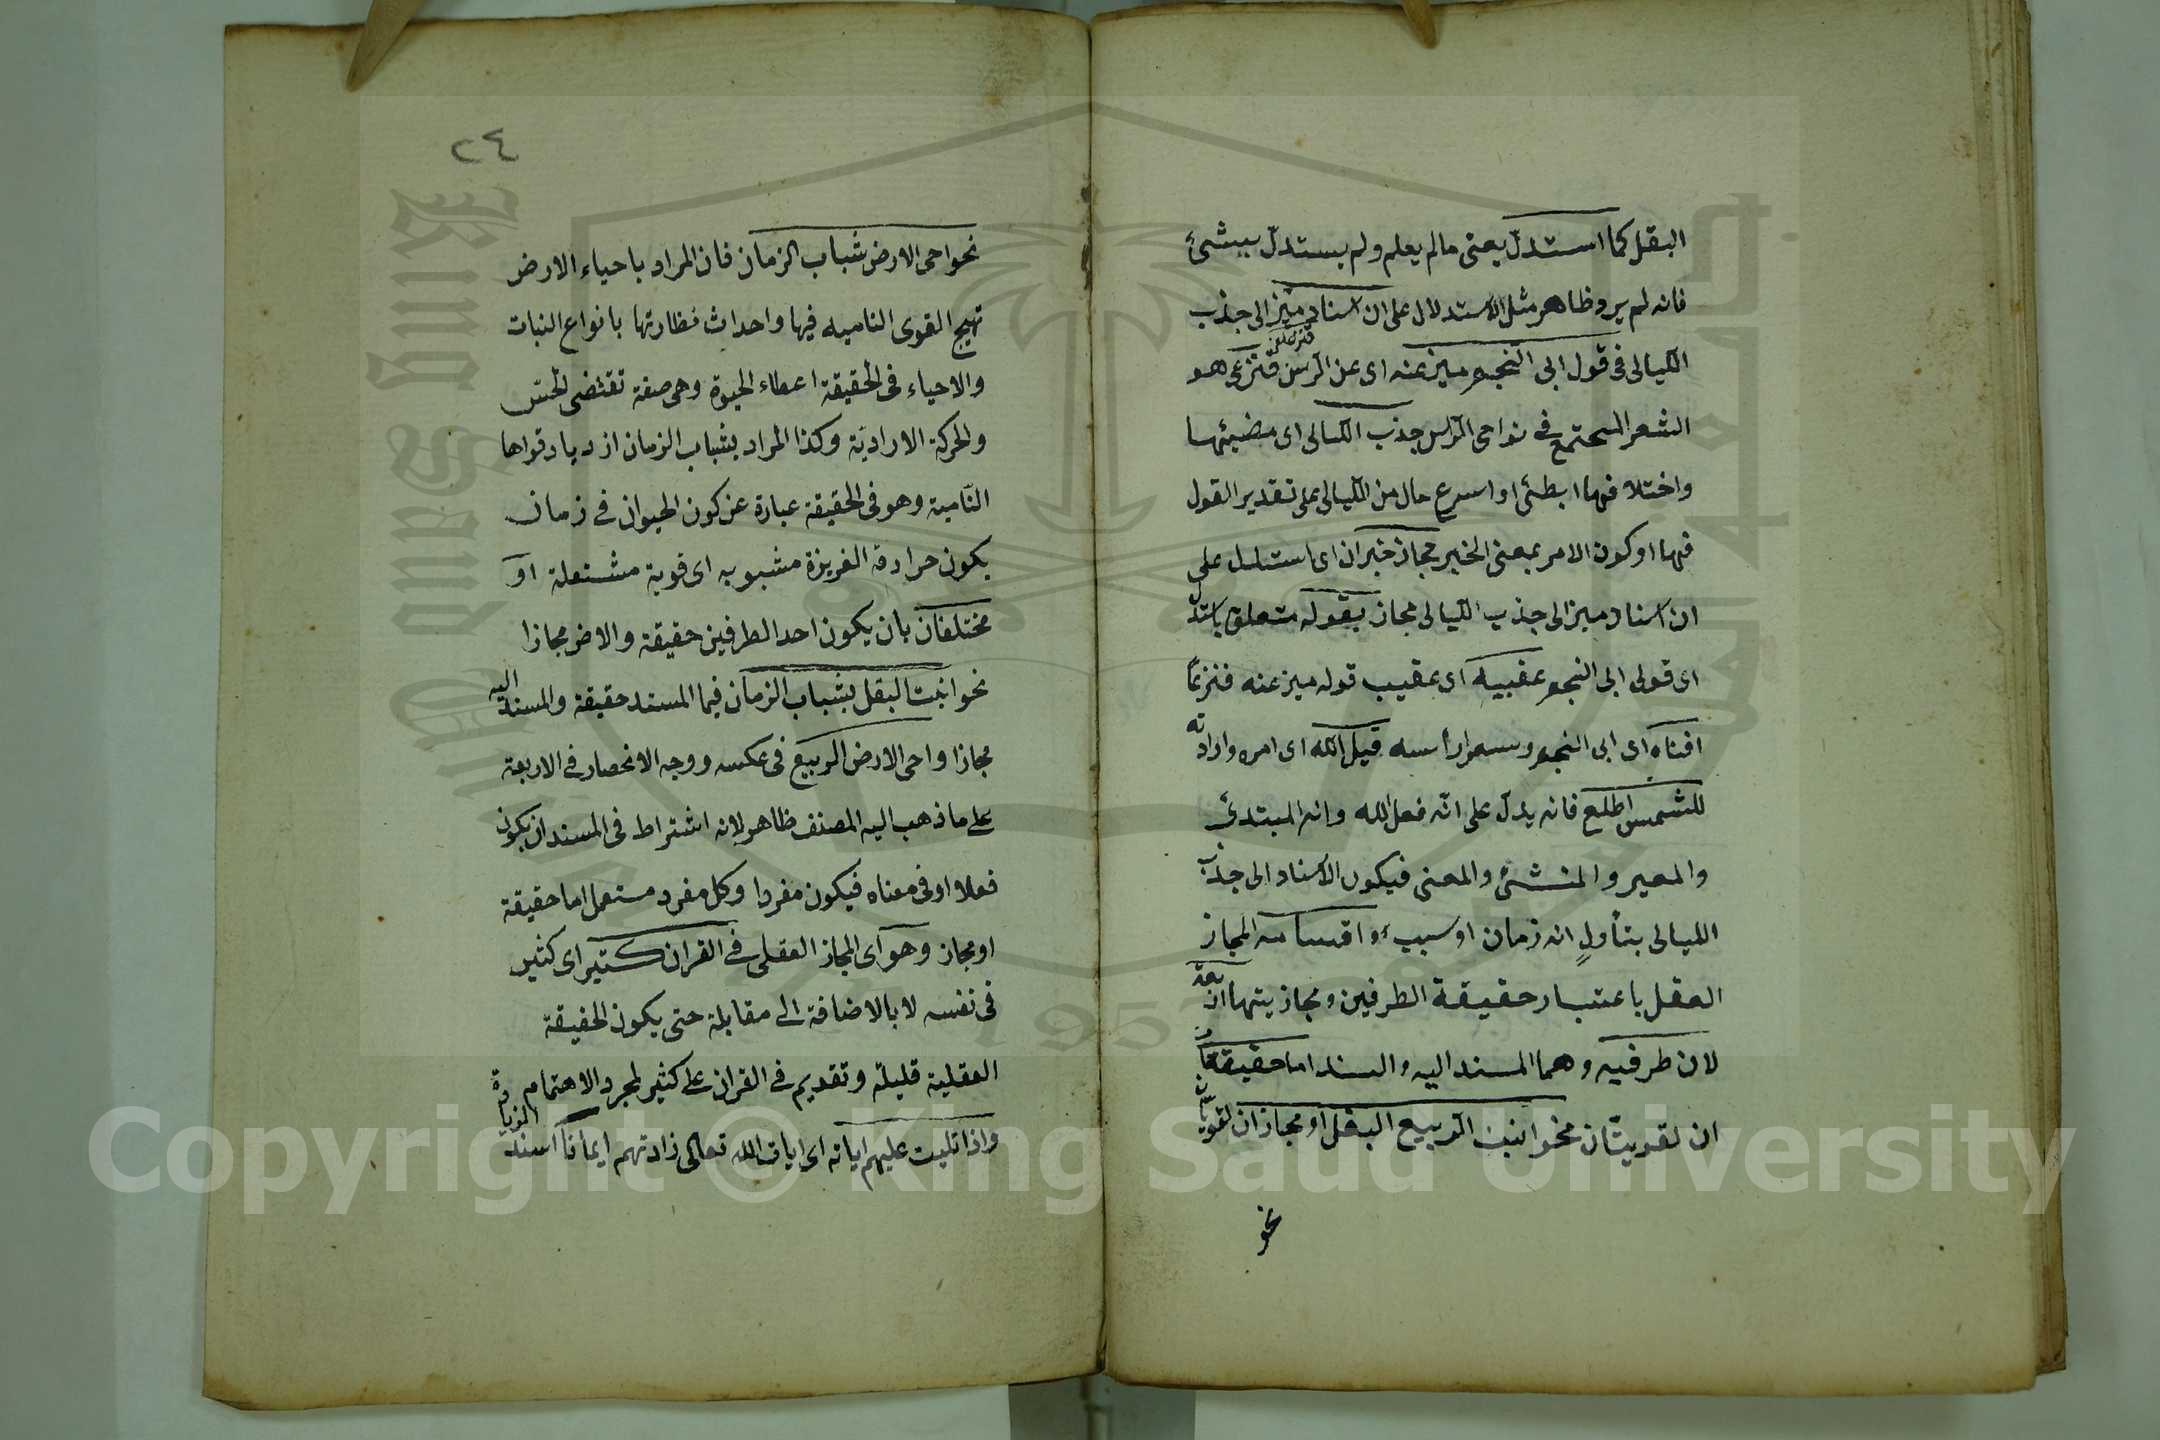 البقل كما استدل يعنى مالم يعلم ولم يستدل بشئ
فانه لم يرو ظاهر مثل الاستدلال على ان اسناد ميز الى جذب
الليالى فى قول ابى النجم ميز عنه اى عن الرأس قنزعا هو
الشعر المجتمع فى نواحى الرأس جذب الليالى اى مضيئها
واختلافها ابطئى او اسرعى حال من الليالى على تقدير القول
فيها او كون الامر بمعنى الخبر مجاز خبر ان اى استدل على
ان اسناد ميز الى جذب الليالى مجاز بقوله متعلق باستدل
اى قول ابى النجم عقيبه اى عقيب قوله ميز عنه قنزعا
افناه اى ابى النجم وسمر ارأسه قيل الله اى امره وارادته
للشمس اطلعى فانه يدل على انه فعل الله وانه المبتدئ
والمعير والمنشئ والمعنى فيكون الاسناد الى جذب
الليالى بتأول انه زمان او سبب واقسامه المجاز
العقل باعتبار حقيقة الطرفين ومجازيتهما اربعة
لان طرفيه وهما المسند اليه والسند اما حقيقتا
ان لغويتان نحو انبت الربيع البقل او مجازان لغويان
نحو
٢٤
نحو احى الارض شباب الزمان فان المراد باحياء الارض
تهيج القوى الناميه فيها واحداث نظارتها بانواع النبات
والاحياء فى الحقيقة اعطاء الحيوة وهى صفة تقتضى الحس
والحركة الارادية وكذا المراد بشباب الزمان ازدياد قواها
النامية وهو فى الحقيقة عبارة عن كون الحيوان فى زمان
يكون حرارته الغريزة مشبوبه اى قوية مشتعلة او
مختلفان بان يكون احد الطرفين حقيقة والاخر مجازا
نحو انبت البقل بشباب الزمان فيما المسند حقيقة والمسند اليه
مجازا واحى الارض الربيع فى عكسه ووجه الانحصار فى الاربعة
على ما ذهب اليه المصنف ظاهر لانه اشتراط فى المسند ان يكون
فعلا او فى معناه فيكون مفردا وكل مفرد مستعمل اما حقيقة
او مجاز وهو اى المجاز العقلى فى القران كثير اى كثير
فى نفسه لا بالاضافة الى مقابلة حتى يكون الحقيقة
العقلية قليلة وتقديم فى القران على كثير لمجرد الاهتمام
واذا تليت عليهم اياته اى ايات الله تعالى زادتهم ايمانا اسند الزيادة
Copyright © King Saud University
King Saud University
1957